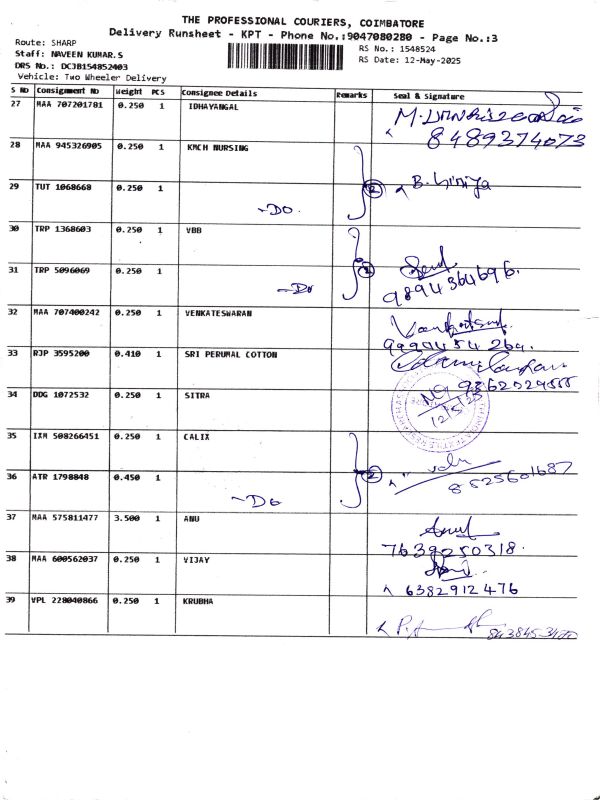 THE PROFESSIONAL COURIERS, COIMBATORE
Delivery Runsheet - KPT - Phone No.:9047080280 - Page No.:3
Route: SHARP
RS No.: 1548524
Staff: NAVEEN KUMAR.S
RS Date: 12-May-2025
DRS No.: DCJB154852403
Vehicle: Two Wheeler Delivery
S No Consignment No Weight PCS Consignee Details Remarks Seal & Signature
27 MAA 707201781 0.250 1 IDHAYANGAL
8489374073
28 MAA 945326905 0.250 1 KMCH NURSING
29 TUT 1068668 0.250 1 -DO. 2 B. Siniya
30 TRP 1368603 0.250 1 VBB
31 TRP 5096069 0.250 1 -Do 2
9894364696.
32 MAA 707400242 0.250 1 VENKATESWARAN
33 RJP 3595200 0.410 1 SRI PERUMAL COTTON
34 DDG 1072532 0.250 1 SITRA
12/5/25
35 IXM 508266451 0.250 1 CALIX
36 ATR 1798848 0.450 1 -Do 2
8525601687
37 MAA 575811477 3.500 1 ANU
7639250318.
38 MAA 600562037 0.250 1 VIJAY
6382912476
39 VPL 228040866 0.250 1 KRUBHA